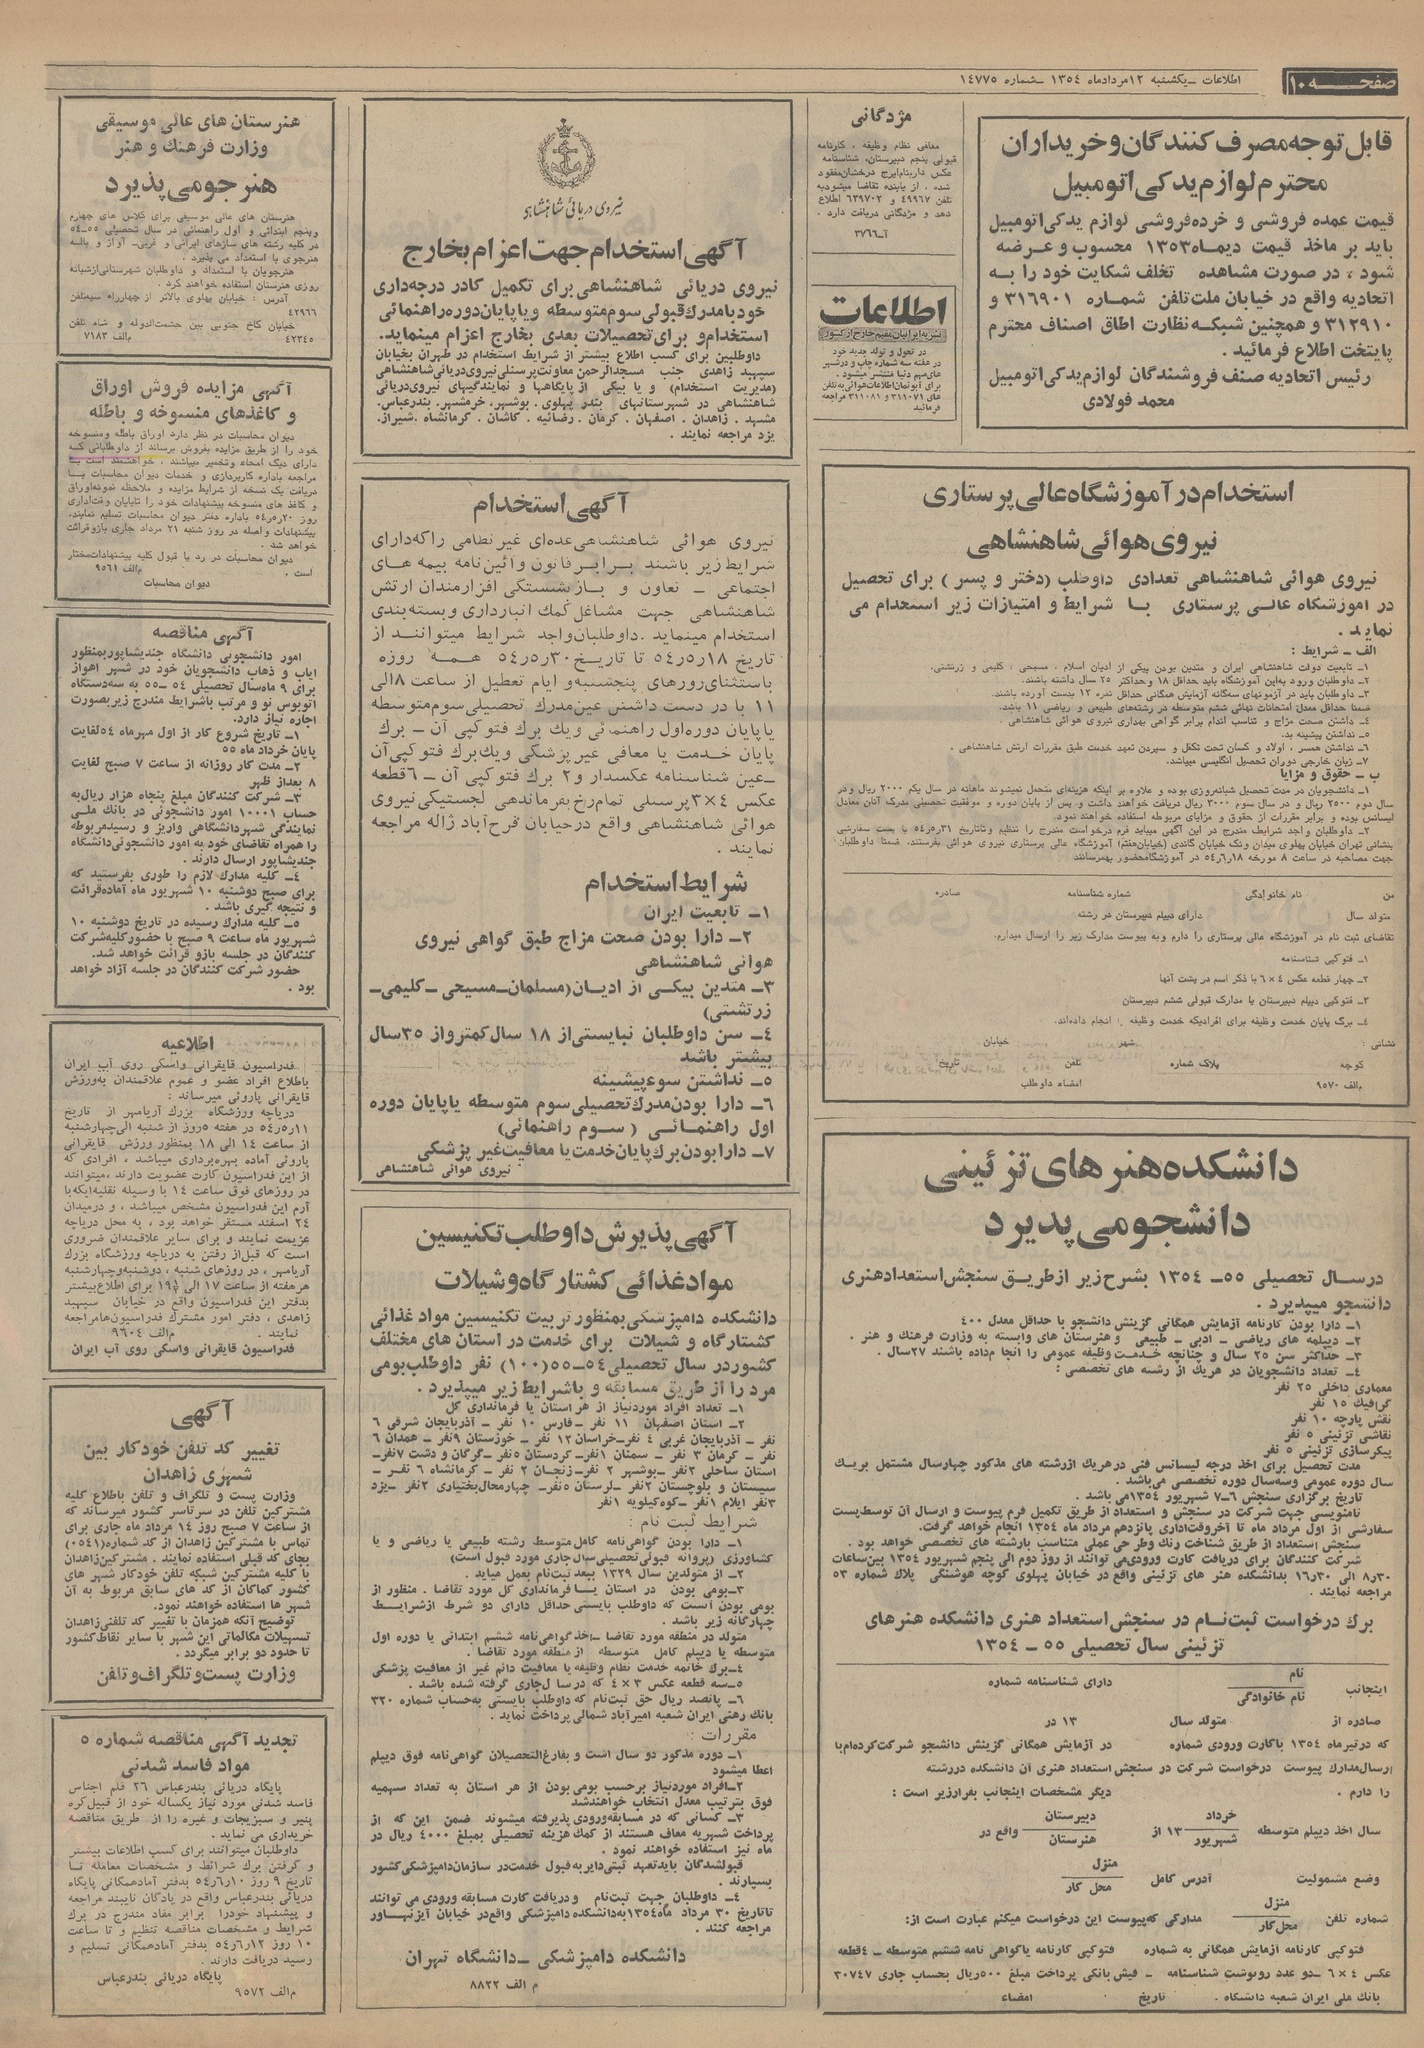 صفحه ۱۰
اطلاعات ـ یکشنبه ۱۲ مردادماه ۱۳۵٤ ـ شماره ۱٤۷۷۵
قابل توجه مصرف کنندگان و خریداران
محترم لوازم یدکی اتومبیل
قیمت عمده فروشی و خرده فروشی لوازم یدکی اتومبیل
باید بر ماخذ قیمت دیماه ۱۳۵۳ محسوب و عرضه
شود ، در صورت مشاهده تخلف شکایت خود را به
اتحادیه واقع در خیابان ملت تلفن شماره ۳۱۶۹۰۱ و
۳۱۲۹۱۰ و همچنین شبکه نظارت اطاق اصناف محترم
پایتخت اطلاع فرمائید .
رئیس اتحادیه صنف فروشندگان لوازم یدکی اتومبیل
محمد فولادی
مژدگانی
معافی نظام وظیفه ، کارنامه
قبولی پنجم دبیرستان، شناسنامه
عکس دار بنام ایرج درخشان مفقود
شده . از یابنده تقاضا میشود به
تلفن ٤۹۹۶۷ و ۶۳۹۷۰۲ اطلاع
دهد و مژدگانی دریافت دارد .
آـ۳۷۶۶
اطلاعات
نشریه ایرانیان مقیم خارج از کشور
در تحول و تولد جدید خود
در هفته سه شماره چاپ و در شهر
های مهم دنیا منتشر میشود .
برای آبونمان اطلاعات هوائی به تلفن
های ۳۱۱۰۷۱ و ۳۱۱۰۸۱ مراجعه
فرمائید
استخدام در آموزشگاه عالی پرستاری
نیروی هوائی شاهنشاهی
نیروی هوائی شاهنشاهی تعدادی داوطلب (دختر و پسر ) برای تحصیل
در آموزشگاه عالی پرستاری با شرایط و امتیازات زیر استخدام می
نماید .
الف ـ شرایط :
۱ـ تابعیت دولت شاهنشاهی ایران و متدین بودن بیکی از ادیان اسلام ، مسیحی ، کلیمی و زرتشتی.
۲ـ داوطلبان ورود به این آموزشگاه باید حداقل ۱۸ و حداکثر ۲۵ سال داشته باشند.
۳ـ داوطلبان باید در آزمونهای سه گانه آزمایش همگانی حداقل نمره ۱۲ بدست آورده باشند.
ضمنا حداقل معدل امتحانات نهائی ششم متوسطه در رشته های طبیعی و ریاضی ۱۱ باشد.
٤ـ داشتن صحت مزاج و تناسب اندام برابر گواهی بهداری نیروی هوائی شاهنشاهی .
۵ـ نداشتن پیشینه بد.
۶ـ نداشتن همسر ، اولاد و کسان تحت تکفل و سپردن تعهد خدمت طبق مقررات ارتش شاهنشاهی .
۷ـ زبان خارجی دوران تحصیل انگلیسی میباشد.
ب ـ حقوق و مزایا
۱ـ دانشجویان در مدت تحصیل شبانه روزی بوده و علاوه بر اینکه هزینه ای متحمل نمیشوند ماهانه در سال یکم ۲۰۰۰ ریال و در
سال دوم ۲۵۰۰ ریال و در سال سوم ۳۰۰۰ ریال دریافت خواهند داشت و پس از پایان دوره و موفقیت تحصیلی مدرک آنان معادل
لیسانس بوده و برابر مقررات از حقوق و مزایای مربوطه استفاده خواهند نمود.
۲ـ داوطلبان واجد شرایط مندرج در این آگهی میباید فرم درخواست مندرج را تنظیم و تا تاریخ ۳۱ر۵ر۵٤ با پست سفارشی
بنشانی تهران خیابان پهلوی میدان ونک خیابان گاندی (خیابان هفتم) آموزشگاه عالی پرستاری نیروی هوائی بفرستند، ضمنا داوطلبان
جهت مصاحبه در ساعت ۸ مورخه ۱۸ر۶ر۵٤ در آموزشگاه حضور بهم رسانند
من نام خانوادگی شماره شناسنامه صادره
متولد سال دارای دیپلم دبیرستان در رشته
تقاضای ثبت نام در آموزشگاه عالی پرستاری را دارم و به پیوست مدارک زیر را ارسال میدارم.
۱ـ فتوکپی شناسنامه
۲ـ چهار قطعه عکس ٤ × ۶ با ذکر اسم در پشت آنها
۳ـ فتوکپی دیپلم دبیرستان یا مدارک قبولی ششم دبیرستان
٤ـ برگ پایان خدمت وظیفه برای افرادیکه خدمت وظیفه را انجام داده اند.
نشانی : شهر خیابان
کوچه پلاک شماره تلفن تاریخ
امضاء داوطلب
م الف ۹۵۷۰
دانشکده هنرهای تزئینی
دانشجو می پذیرد
در سال تحصیلی ۵۵ـ ۱۳۵٤ بشرح زیر از طریق سنجش استعداد هنری
دانشجو میپذیرد .
۱ـ دارا بودن کارنامه آزمایش همگانی گزینش دانشجو با حداقل معدل ٤۰۰
۲ـ دیپلمه های ریاضی ـ ادبی ـ طبیعی و هنرستان های وابسته به وزارت فرهنگ و هنر .
۳ـ حداکثر سن ۲۵ سال و چنانچه خدمت وظیفه عمومی را انجام داده باشند ۲۷ سال .
٤ـ تعداد دانشجویان در هریک از رشته های تخصصی :
معماری داخلی ۲۵ نفر
گرافیک ۱۵ نفر
نقش پارچه ۱۰ نفر
نقاشی تزئینی ۵ نفر
پیکرسازی تزئینی ۵ نفر
مدت تحصیل برای اخذ درجه لیسانس فنی در هریک از رشته های مذکور چهار سال مشتمل بر یک
سال دوره عمومی و سه سال دوره تخصصی می باشد .
تاریخ برگزاری سنجش ۶ـ۷ شهریور ۱۳۵٤ می باشد .
نامنویسی جهت شرکت در سنجش و استعداد از طریق تکمیل فرم پیوست و ارسال آن توسط پست
سفارشی از اول مرداد ماه تا آخر وقت اداری پانزدهم مرداد ماه ۱۳۵٤ انجام خواهد گرفت.
سنجش استعداد از طریق شناخت رنگ و طرحی عملی متناسب با رشته های تخصصی خواهد بود .
شرکت کنندگان برای دریافت کارت ورودی می توانند از روز دوم الی پنجم شهریور ۱۳۵٤ بین ساعات
۸ر۳۰ الی ۱۶ر۳۰ بدانشکده هنر های تزئینی واقع در خیابان پهلوی کوچه هوشنگی پلاک شماره ۵۳
مراجعه نمایند .
برگ درخواست ثبت نام در سنجش استعداد هنری دانشکده هنرهای
تزئینی سال تحصیلی ۵۵ ـ ۱۳۵٤
اینجانب نام
نام خانوادگی دارای شناسنامه شماره
صادره از متولد سال ۱۳ در
که در تیر ماه ۱۳۵٤ با کارت ورودی شماره در آزمایش همگانی گزینش دانشجو شرکت کرده ام با
ارسال مدارک پیوست درخواست شرکت در سنجش استعداد هنری آن دانشکده در رشته
را دارم . دیگر مشخصات اینجانب بقرار زیر است :
سال اخذ دیپلم متوسطه خرداد
شهریور ۱۳ از دبیرستان
هنرستان واقع در
وضع مشمولیت آدرس کامل منزل
محل کار
شماره تلفن منزل
محل کار مدارکی که پیوست این درخواست میکنم عبارت است از:
فتوکپی کارنامه آزمایش همگانی به شماره فتوکپی کارنامه یا گواهی نامه ششم متوسطه ـ ٤ قطعه
عکس ٤ × ۶ ـ دو عدد رونوشت شناسنامه ـ فیش بانکی پرداخت مبلغ ۵۰۰ ریال بحساب جاری ۳۰۷٤۷
بانک ملی ایران شعبه دانشگاه . تاریخ امضاء
نیروی دریائی شاهنشاهی
آگهی استخدام جهت اعزام بخارج
نیروی دریائی شاهنشاهی برای تکمیل کادر درجه داری
خود با مدرک قبولی سوم متوسطه و یا پایان دوره راهنمائی
استخدام و برای تحصیلات بعدی بخارج اعزام مینماید.
داوطلبین برای کسب اطلاع بیشتر از شرایط استخدام در طهران بخیابان
سپهبد زاهدی جنب مسجد الرحمن معاونت پرسنلی نیروی دریائی شاهنشاهی
(مدیریت استخدام) و یا بیکی از پایگاهها و نمایندگیهای نیروی دریائی
شاهنشاهی در شهرستانهای بندر پهلوی . بوشهر. خرمشهر. بندرعباس.
مشهد . زاهدان . اصفهان . کرمان . رضائیه . کاشان . کرمانشاه .شیراز.
یزد مراجعه نمایند .
آگهی استخدام
نیروی هوائی شاهنشاهی عده ای غیر نظامی را که دارای
شرایط زیر باشند برابر قانون و آئین نامه بیمه های
اجتماعی ـ تعاون و بازنشستگی افزارمندان ارتش
شاهنشاهی جهت مشاغل کمک انبارداری و بسته بندی
استخدام مینماید . داوطلبان واجد شرایط میتوانند از
تاریخ ۱۸ر۵ر۵٤ تا تاریخ ۳۰ر۵ر۵٤ همه روزه
باستثنای روزهای پنجشنبه و ایام تعطیل از ساعت ۸ الی
۱۱ با در دست داشتن عین مدرک تحصیلی سوم متوسطه
یا پایان دوره اول راهنمائی و یک برگ فتوکپی آن ـ برگ
پایان خدمت یا معافی غیر پزشکی و یک برگ فتوکپی آن
ـ عین شناسنامه عکسدار و ۲ برگ فتوکپی آن ـ ۶ قطعه
عکس ٤×۳ پرسنلی تمام رخ بفرماندهی لجستیکی نیروی
هوائی شاهنشاهی واقع در خیابان فرح آباد ژاله مراجعه
نمایند .
شرایط استخدام
۱ـ تابعیت ایران
۲ـ دارا بودن صحت مزاج طبق گواهی نیروی
هوائی شاهنشاهی
۳ـ متدین بیکی از ادیان (مسلمان ـ مسیحی ـ کلیمی ـ
زرتشتی)
٤ـ سن داوطلبان نبایستی از ۱۸ سال کمتر و از ۳۵ سال
بیشتر باشد
۵ـ نداشتن سوء پیشینه
۶ـ دارا بودن مدرک تحصیلی سوم متوسطه یا پایان دوره
اول راهنمائی ( سوم راهنمائی)
۷ـ دارا بودن برگ پایان خدمت یا معافیت غیر پزشکی
نیروی هوائی شاهنشاهی
آگهی پذیرش داوطلب تکنیسین
مواد غذائی کشتارگاه و شیلات
دانشکده دامپزشکی بمنظور تربیت تکنیسین مواد غذائی
کشتارگاه و شیلات برای خدمت در استان های مختلف
کشور در سال تحصیلی ۵٤ـ۵۵ (۱۰۰) نفر داوطلب بومی
مرد را از طریق مسابقه و با شرایط زیر میپذیرد .
۱ـ تعداد افراد مورد نیاز از هر استان یا فرمانداری کل
۲ـ استان اصفهان ۱۱ نفر ـ فارس ۱۰ نفر ـ آذربایجان شرقی ۶
نفر ـ آذربایجان غربی ٤ نفر ـ خراسان ۱۲ نفر ـ خوزستان ۹ نفر ـ همدان ۶
نفر ـ کرمان ۳ نفر ـ سمنان ۱ نفر ـ کردستان ۵ نفر ـ گرگان و دشت ۷ نفر ـ
استان ساحلی ۲ نفر ـ بوشهر ۲ نفر ـ زنجان ۲ نفر ـ کرمانشاه ۶ نفر ـ
سیستان و بلوچستان ۲ نفر ـ لرستان ۵ نفر ـ چهارمحال بختیاری ۲ نفر ـ یزد
۳ نفر ایلام ۱ نفر ـ کوه کیلویه ۱ نفر
شرایط ثبت نام :
۱ـ دارا بودن گواهی نامه کامل متوسطه رشته طبیعی یا ریاضی و یا
کشاورزی (پروانه قبولی تحصیلی سال جاری مورد قبول است)
۲ـ از متولدین سال ۱۳۲۹ ببعد ثبت نام بعمل میاید .
۳ـ بومی بودن در استان یا فرمانداری کل مورد تقاضا . منظور از
بومی بودن آنست که داوطلب بایستی حداقل دارای دو شرط از شرایط
چهارگانه زیر باشد .
متولد در منطقه مورد تقاضا ـ اخذ گواهی نامه ششم ابتدائی یا دوره اول
متوسطه یا دیپلم کامل متوسطه از منطقه مورد تقاضا .
٤ـ برگ خاتمه خدمت نظام وظیفه یا معافیت دائم غیر از معافیت پزشکی
۵ـ سه قطعه عکس ۳ × ٤ که در سال جاری گرفته شده باشد .
۶ـ پانصد ریال حق ثبت نام که داوطلب بایستی به حساب شماره ۳۲۰
بانک رهنی ایران شعبه امیرآباد شمالی پرداخت نماید .
مقررات :
۱ـ دوره مذکور دو سال است و بفارغ التحصیلان گواهی نامه فوق دیپلم
اعطا میشود
۲ـ افراد مورد نیاز برحسب بومی بودن از هر استان به تعداد سهمیه
فوق بترتیب معدل انتخاب خواهند شد
۳ـ کسانی که در مسابقه ورودی پذیرفته میشوند ضمن این که از
پرداخت شهریه معاف هستند از کمک هزینه تحصیلی بمبلغ ٤۰۰۰ ریال در
ماه نیز استفاده خواهند نمود .
قبولشدگان باید تعهد ثبتی دایر به قبول خدمت در سازمان دامپزشکی کشور
بسپارند .
٤ـ داوطلبان جهت ثبت نام و دریافت کارت مسابقه ورودی می توانند
تا تاریخ ۳۰ مرداد ماه ۱۳۵٤ به دانشکده دامپزشکی واقع در خیابان آیزنهاور
مراجعه کنند .
دانشکده دامپزشکی ـ دانشگاه تهران
م الف ۸۸۲۲
هنرستان های عالی موسیقی
وزارت فرهنگ و هنر
هنرجو می پذیرد
هنرستان های عالی موسیقی برای کلاس های چهارم
و پنجم ابتدائی و اول راهنمائی در سال تحصیلی ۵۵ـ۵٤
در کلیه رشته های سازهای ایرانی و غربی ـ آواز و باله
هنرجوی با استعداد می پذیرد .
هنرجویان با استعداد و داوطلبان شهرستانی از شبانه
روزی هنرستان استفاده خواهند کرد .
آدرس : خیابان پهلوی بالاتر از چهارراه سپه تلفن
٤۲۹۶۶
خیابان کاخ جنوبی بین حشمت الدوله و شاه تلفن
٤۲۳٤۵ م الف ۷۱۸۳
آگهی مزایده فروش اوراق
و کاغذهای منسوخه و باطله
دیوان محاسبات در نظر دارد اوراق باطله و منسوخه
خود را از طریق مزایده بفروش برساند از داوطلبانی که
دارای دیگ امحاء و تخمیر میباشند ، خواهشمند است با
مراجعه باداره کارپردازی و خدمات دیوان محاسبات با
دریافت یک نسخه از شرایط مزایده و ملاحظه نمونه اوراق
و کاغذ های منسوخه پیشنهادات خود را تا پایان وقت اداری
روز ۲۰ر۵ر۵٤ باداره دفتر دیوان محاسبات تسلیم نمایند.
پیشنهادات واصله در روز شنبه ۲۱ مرداد جاری باز و قرائت
خواهد شد .
دیوان محاسبات در رد یا قبول کلیه پیشنهادات مختار
است . م الف ۹۵۶۱
دیوان محاسبات
آگهی مناقصه
امور دانشجوئی دانشگاه جندیشاپور بمنظور
ایاب و ذهاب دانشجویان خود در شهر اهواز
برای ۹ ماه سال تحصیلی ۵٤ ـ۵۵ به سه دستگاه
اتوبوس نو و مرتب با شرایط مندرج زیر بصورت
اجاره نیاز دارد.
۱ـ تاریخ شروع کار از اول مهر ماه ۵٤ لغایت
پایان خرداد ماه ۵۵
۲ـ مدت کار روزانه از ساعت ۷ صبح لغایت
۸ بعد از ظهر
۳ـ شرکت کنندگان مبلغ پنجاه هزار ریال به
حساب ۱۰۰۰۱ امور دانشجوئی در بانک ملی
نمایندگی شهر دانشگاهی واریز و رسید مربوطه
را همراه تقاضای خود به امور دانشجوئی دانشگاه
جندیشاپور ارسال دارند .
٤ـ کلیه مدارک لازم را طوری بفرستید که
برای صبح دوشنبه ۱۰ شهریور ماه آماده قرائت
و نتیجه گیری باشد .
۵ـ کلیه مدارک رسیده در تاریخ دوشنبه ۱۰
شهریور ماه ساعت ۹ صبح با حضور کلیه شرکت
کنندگان در جلسه باز و قرائت خواهد شد.
حضور شرکت کنندگان در جلسه آزاد خواهد
بود .
اطلاعیه
فدراسیون قایقرانی و اسکی روی آب ایران
باطلاع افراد عضو و عموم علاقمندان به ورزش
قایقرانی پاروئی میرساند :
دریاچه ورزشگاه بزرگ آریامهر از تاریخ
۱۱ر۵ر۵٤ در هفته ۵ روز از شنبه الی چهارشنبه
از ساعت ۱٤ الی ۱۸ بمنظور ورزش قایقرانی
پاروئی آماده بهره برداری میباشد ، افرادی که
از این فدراسیون کارت عضویت دارند ، میتوانند
در روزهای فوق ساعت ۱٤ با وسیله نقلیه ایکه با
آرم این فدراسیون مشخص میباشد ، و در میدان
۲٤ اسفند مستقر خواهد بود ، به محل دریاچه
عزیمت نمایند و برای سایر علاقمندان ضروری
است که قبل از رفتن به دریاچه ورزشگاه بزرگ
آریامهر ، در روزهای شنبه ، دوشنبه و چهارشنبه
هر هفته از ساعت ۱۷ الی ۱۹ برای اطلاع بیشتر
بدفتر این فدراسیون واقع در خیابان سپهبد
زاهدی ، دفتر امور مشترک فدراسیون ها مراجعه
نمایند . م الف ۹۶۰٤
فدراسیون قایقرانی و اسکی روی آب ایران
آگهی
تغییر کد تلفن خودکار بین
شهری زاهدان
وزارت پست و تلگراف و تلفن باطلاع کلیه
مشترکین تلفن در سرتاسر کشور میرساند که
از ساعت ۷ صبح روز ۱٤ مرداد ماه جاری برای
تماس با مشترکین زاهدان از کد شماره (۰۵٤۱)
بجای کد قبلی استفاده نمایند . مشترکین زاهدان
با کلیه مشترکین شبکه تلفن خودکار شهر های
کشور کماکان از کد های سابق مربوط به آن
شهر ها استفاده خواهند نمود.
توضیح آنکه همزمان با تغییر کد تلفنی زاهدان
تسهیلات مکالماتی این شهر با سایر نقاط کشور
تا حدود دو برابر میگردد .
وزارت پست و تلگراف و تلفن
تجدید آگهی مناقصه شماره ۵
مواد فاسد شدنی
پایگاه دریائی بندرعباس ۲۶ قلم اجناس
فاسد شدنی مورد نیاز یکساله خود از قبیل کره
پنیر و سبزیجات و غیره را از طریق مناقصه
خریداری می نماید .
داوطلبان میتوانند برای کسب اطلاعات بیشتر
و گرفتن برگ شرائط و مشخصات معامله تا
تاریخ ۹ روز ۱۰ر۶ر۵٤ بدفتر آمادهمگانی پایگاه
دریائی بندرعباس واقع در پادگان نایبند مراجعه
و پیشنهاد خود را برابر مفاد مندرج در برگ
شرایط و مشخصات مناقصه تنظیم و تا ساعت
۱۰ روز ۱۲ر۶ر۵٤ بدفتر آمادهمگانی تسلیم و
رسید دریافت دارند .
پایگاه دریائی بندرعباس
م الف ۹۵۷۲